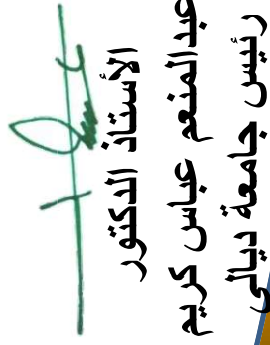 الأستاذ الدكتور
عبدالمنعم عباس كريم
رئيس جامعة ديالى